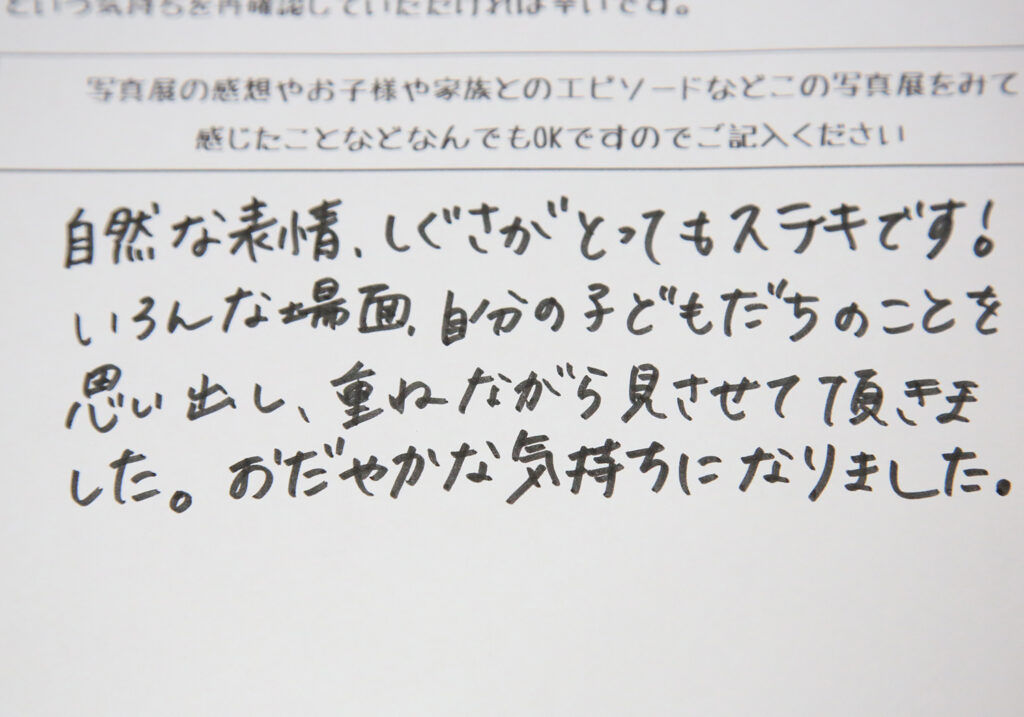 という気持ちを再確認していただければ幸いです。
写真展の感想やお子様や家族とのエピソードなどこの写真展をみて
感じたことなどなんでもOKですのでご記入ください
自然な表情、しぐさがとってもステキです!
いろんな場面、自分の子どもだちのことを
思い出し、重ねながら見させて頂きま
した。おだやかな気持ちになりました。